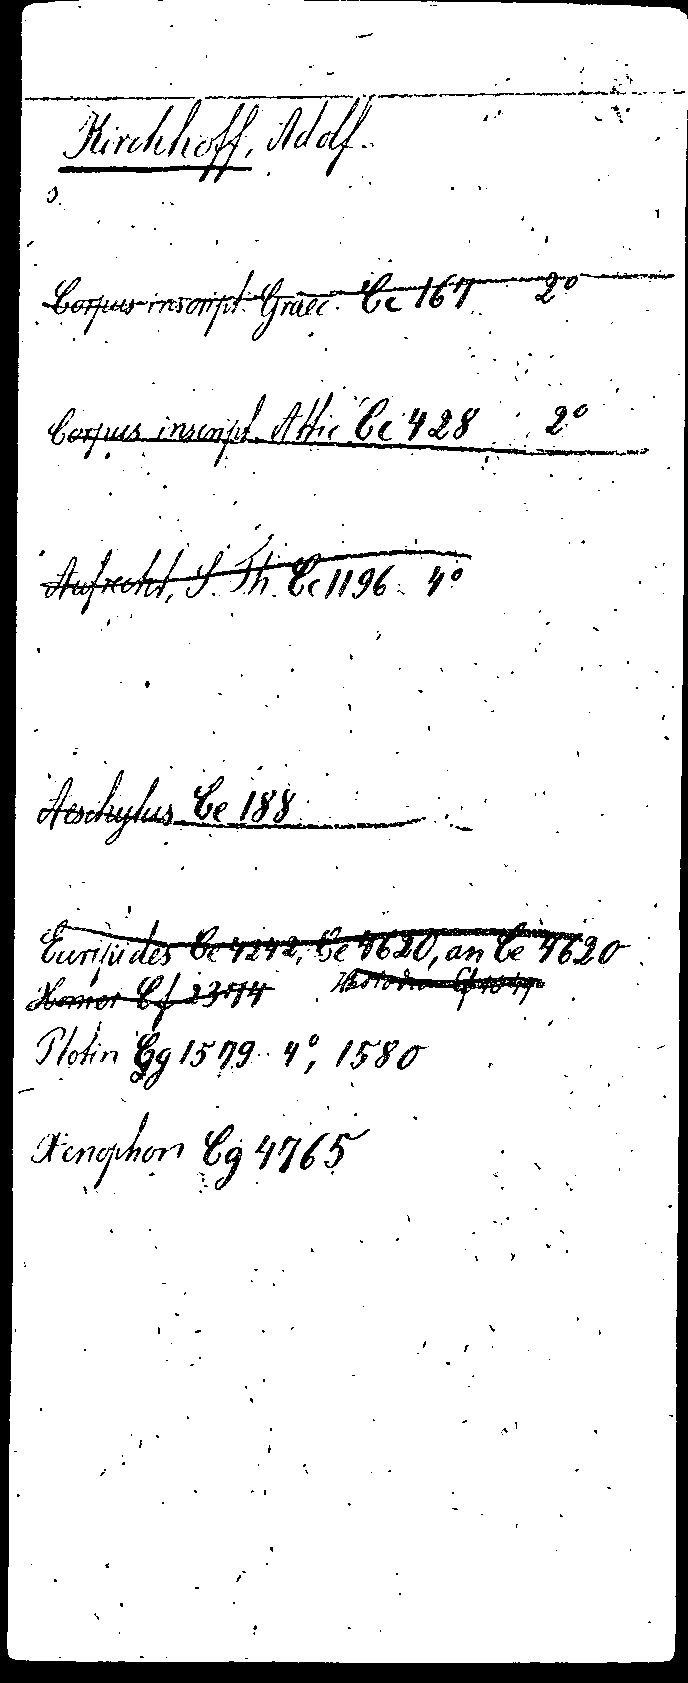 Kirchhoff, Adolf.
Corpus inscript. Graec. Cc 167 2°
Corpus inscript. Attic Cc 428 2°
Aufrecht, S. Th. Cc 1196 4°
Aeschylus Ce 188
Euripides Ce 4242, Ce 4620, an Ce 4620
Homer Cf 2374
Plotin Cg 1579 4°, 1580
Xenophon Cg 4765